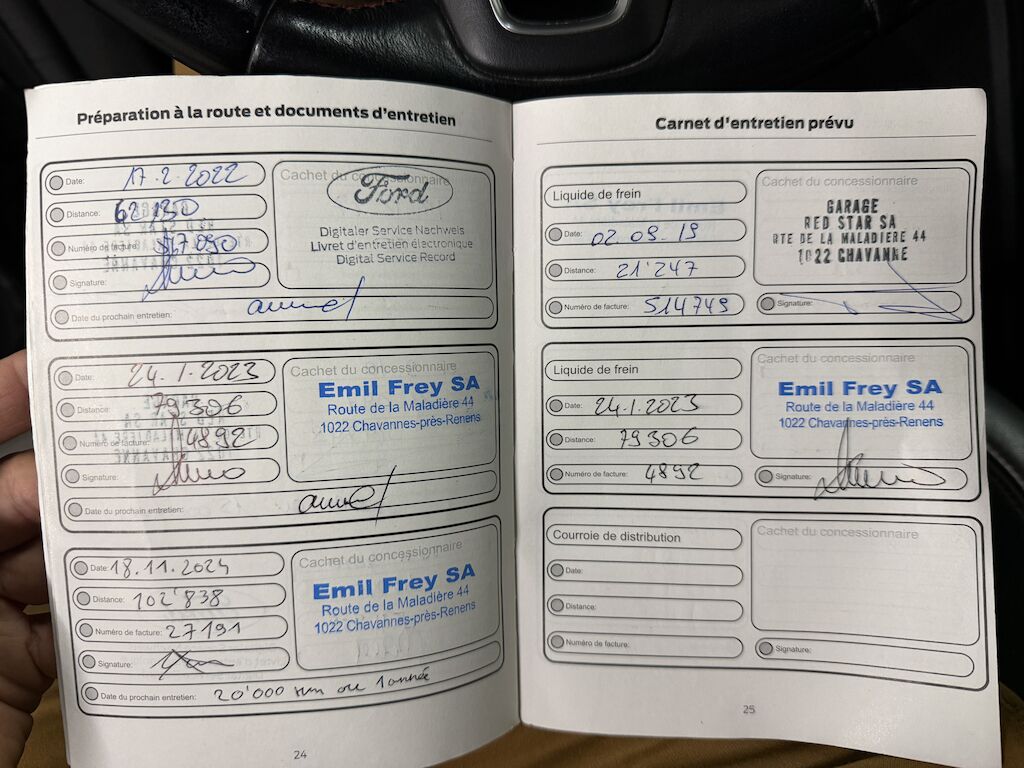 Préparation à la route et documents d'entretien
Date: 17.2.2022
Distance: 62130
Numéro de facture: 17090
Signature:
Date du prochain entretien: annuel
Cachet du concessionnaire
Ford
Digitaler Service Nachweis
Livret d'entretien électronique
Digital Service Record
Date: 24.1.2023
Distance: 79306
Numéro de facture: 4892
Signature:
Date du prochain entretien: annuel
Cachet du concessionnaire
Emil Frey SA
Route de la Maladière 44
1022 Chavannes-près-Renens
Date: 18.11.2024
Distance: 102'838
Numéro de facture: 27191
Signature:
Date du prochain entretien: 20'000 km ou 1 année
Cachet du concessionnaire
Emil Frey SA
Route de la Maladière 44
1022 Chavannes-près-Renens
24
Carnet d'entretien prévu
Liquide de frein
Date: 02.09.19
Distance: 21'247
Numéro de facture: 514749
Cachet du concessionnaire
GARAGE
RED STAR SA
RTE DE LA MALADIERE 44
1022 CHAVANNE
Signature:
Liquide de frein
Date: 24.1.2023
Distance: 79306
Numéro de facture: 4892
Cachet du concessionnaire
Emil Frey SA
Route de la Maladière 44
1022 Chavannes-près-Renens
Signature:
Courroie de distribution
Date:
Distance:
Numéro de facture:
Cachet du concessionnaire
Signature:
25